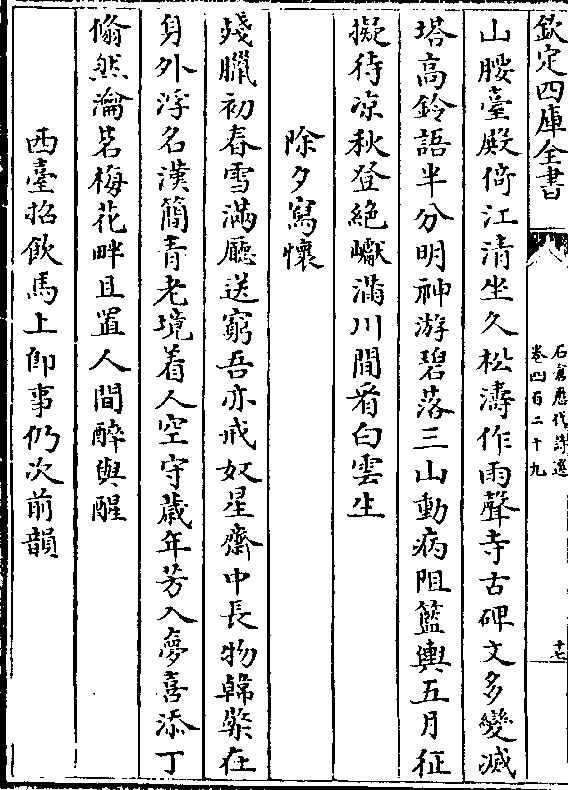 欽定四庫全書
石倉歷代詩選
卷四百二十九
十七
山腰臺殿倚江清坐久松濤作雨聲寺古碑文多變滅
塔高鈴語半分明神游碧落三山動病阻籃輿五月征
擬待凉秋登絶巘滿川閒看白雲生
除夕寫懷
殘臘初春雪滿廳送窮吾亦戒奴星齋中長物韓檠在
身外浮名漢簡青老境着人空守歲年芳入夢喜添丁
翛然瀹茗梅花畔且置人間醉與醒
西臺招飲馬上即事仍次前韻